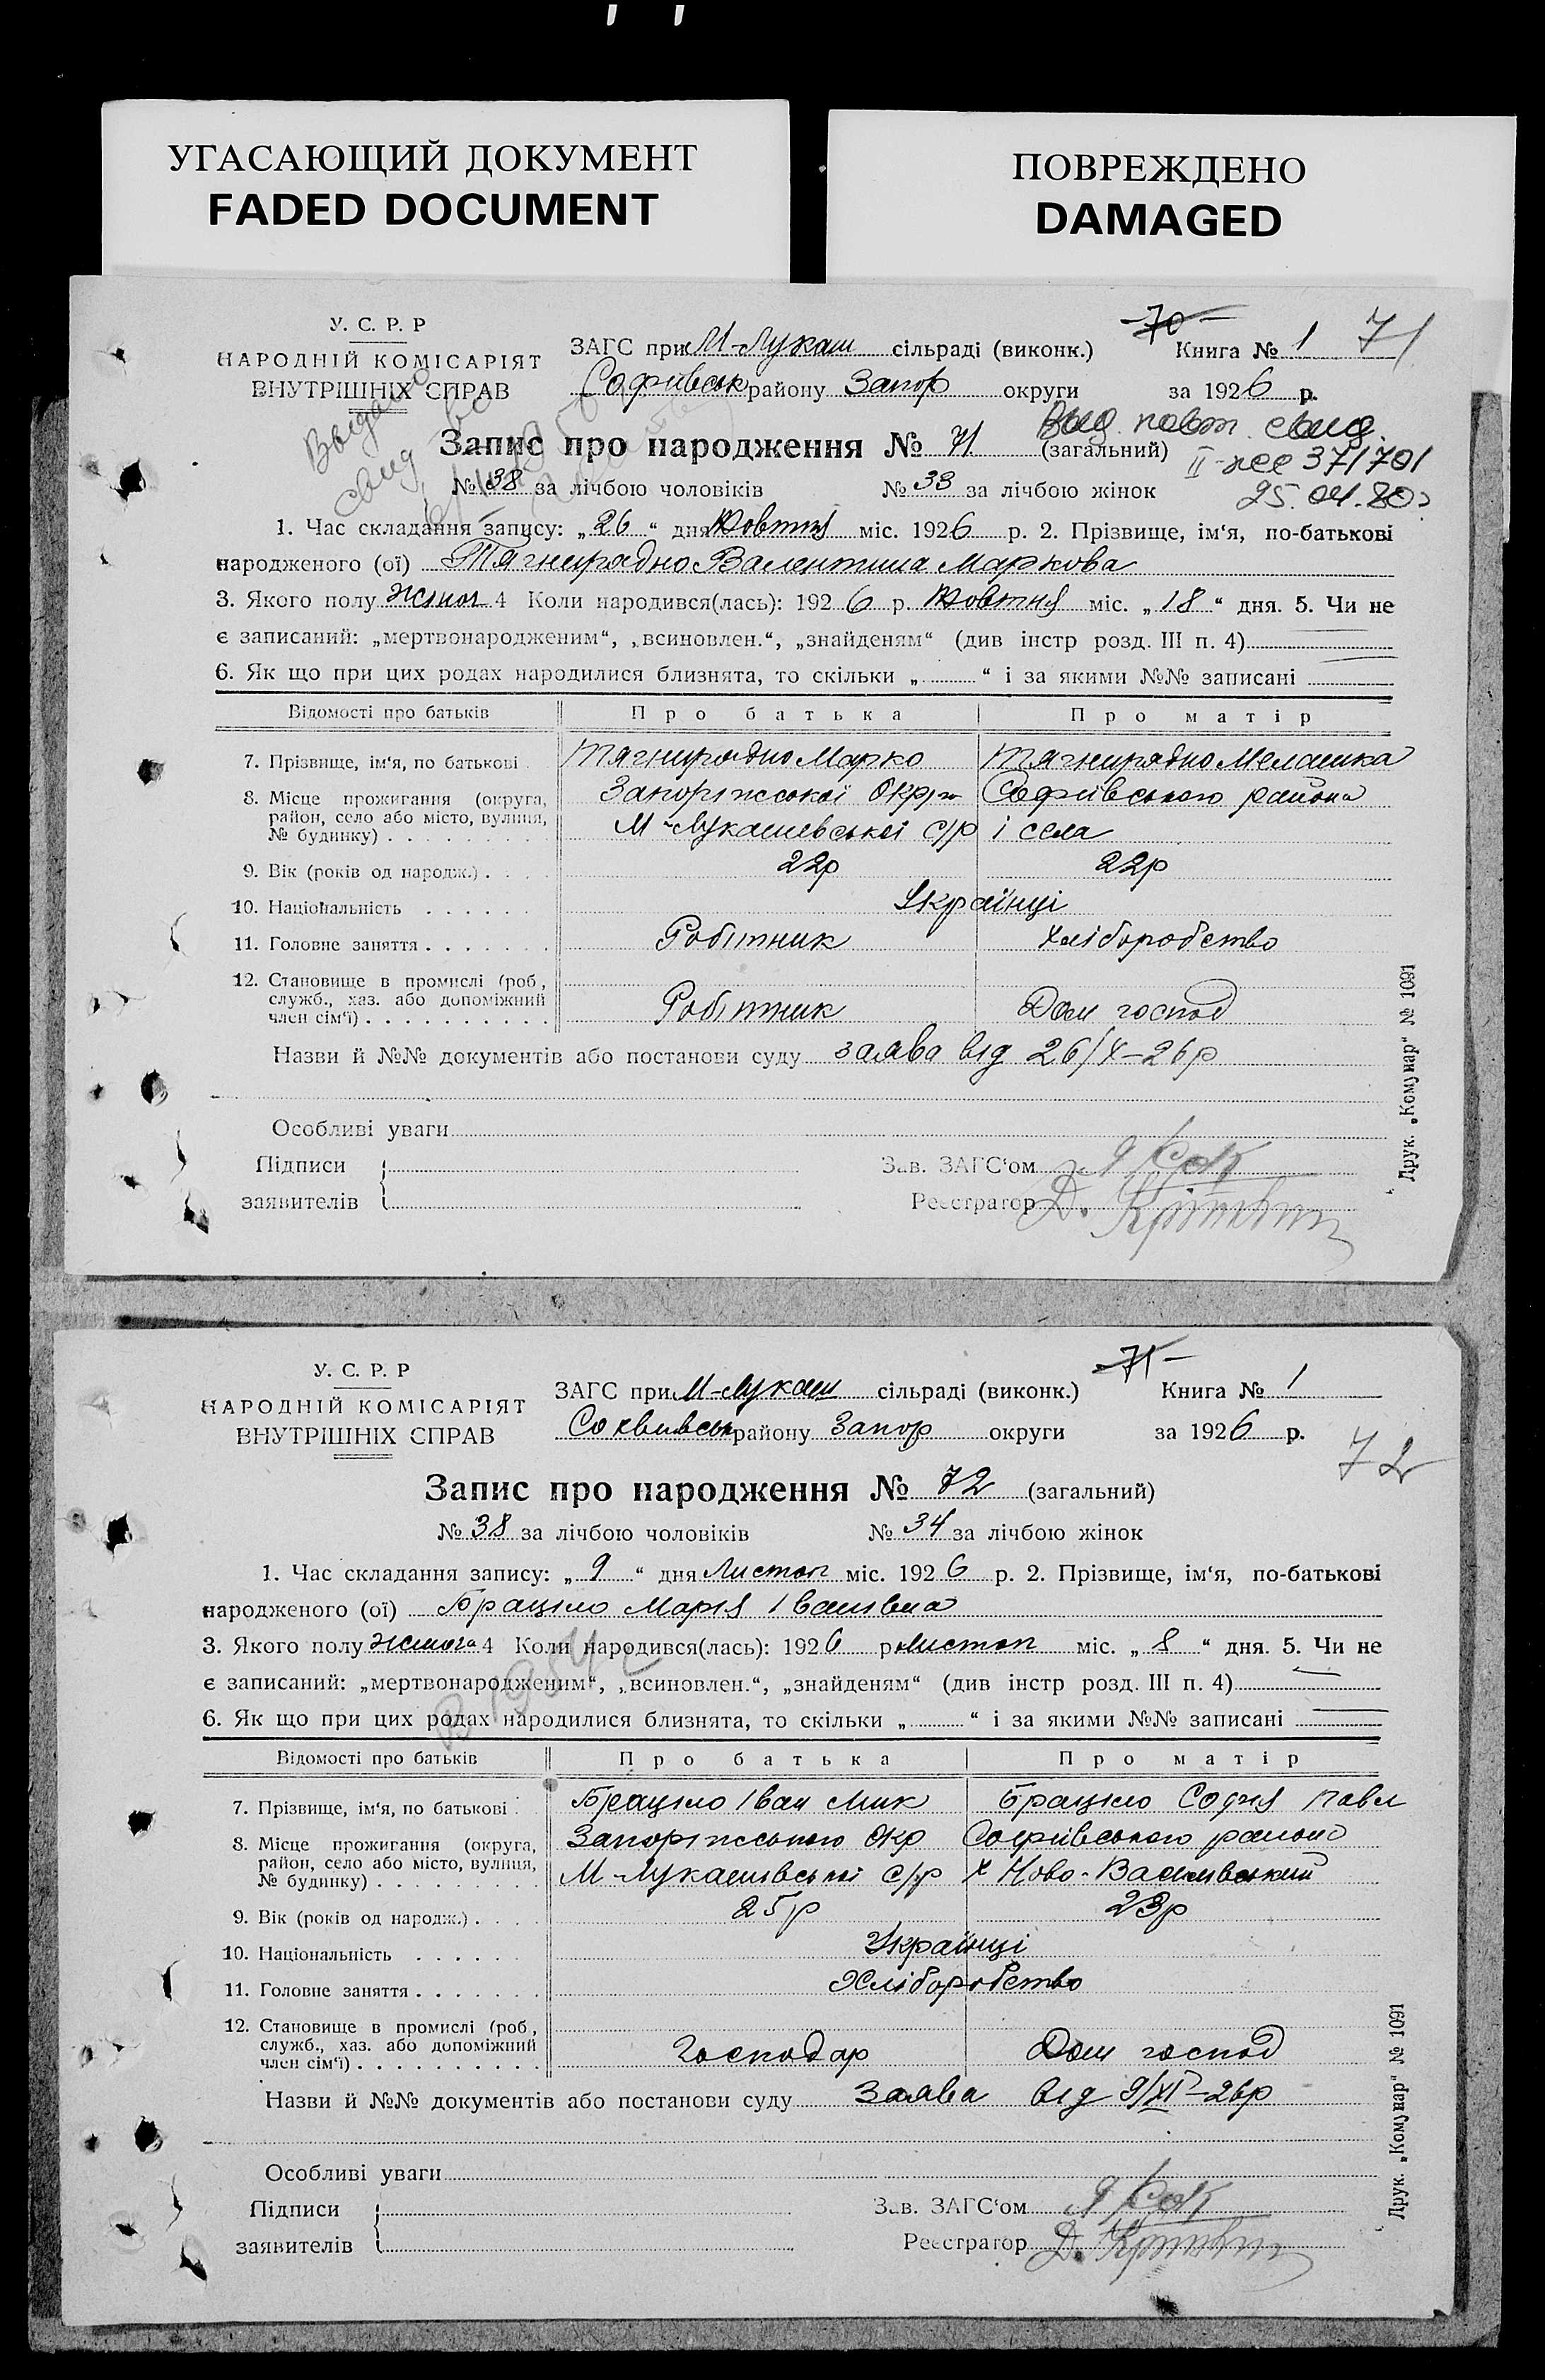 УГАСАЮЩИЙ ДОКУМЕНТ
FADED DOCUMENT
ПОВРЕЖДЕНО
DAMAGED
У. С. Р. Р
НАРОДНІЙ КОМІСАРІЯТ
ВНУТРІШНІХ СПРАВ
70
ЗАГС при М-Лукаш сільраді (виконк.) Книга № 1 71
Софиївськ району Запор округи за 1926 р.
Выдано свид во
Запис про народження № 71 (загальний)
Выд. повт. свид.
II-ЖС 371701
25.04.80г
№ 38 за лічбою чоловіків № 33 за лічбою жінок
1. Час складання запису: „26“ дня Жовтня міс. 1926 р. 2. Прізвище, ім‘я, по-батькові
народженого (ої) Тягнирядно Валентина Маркова
3. Якого полу жіноч 4 Коли народився(лась): 1926 р. Жовтня міс. „18“ дня. 5. Чи не
є записаний: „мертвонародженим“, „всиновлен.“, „знайденям“ (див інстр розд. III п. 4)
6. Як що при цих родах народилися близнята, то скільки „ “ і за якими №№ записані
Відомості про батьків Про батька Про матір
7. Прізвище, ім‘я, по батькові Тягнирядно Марко Тягнирядно Мелашка
8. Місце прожигання (округа, район, село або місто, вулиця, № будинку) Запоріжської Окр Софиївського района
М-Лукашевської с/р і села
9. Вік (років од народж.) 22р 22р
10. Національність Українці
11. Головне заняття Робітник Хліборобство
12. Становище в промислі (роб, служб., хаз. або допоміжний член сім‘ї) Робітник Дом господ
Назви й №№ документів або постанови суду заява від 26/X-26р
Особливі уваги
Підписи
заявителів
Зав. ЗАГС‘ом
Реєстратор
Друк. „Комунар“ № 1091
У. С. Р. Р
НАРОДНІЙ КОМІСАРІЯТ
ВНУТРІШНІХ СПРАВ
71
ЗАГС при М-Лукаш сільраді (виконк.) Книга № 1
Соквивськ району Запор округи за 1926 р.
72
Запис про народження № 72 (загальний)
№ 38 за лічбою чоловіків № 34 за лічбою жінок
1. Час складання запису: „9“ дня Листоп міс. 1926 р. 2. Прізвище, ім‘я, по-батькові
народженого (ої) Браціло Марія Іванівна
3. Якого полу жіноча 4 Коли народився(лась): 1926 р Листоп міс. „8“ дня. 5. Чи не
є записаний: „мертвонародженим“, „всиновлен.“, „знайденям“ (див інстр розд. III п. 4)
В 1954 г
6. Як що при цих родах народилися близнята, то скільки „ “ і за якими №№ записані
Відомості про батьків Про батька Про матір
7. Прізвище, ім‘я, по батькові Браціло Іван Мик Браціло Софія Павл
8. Місце прожигання (округа, район, село або місто, вулиця, № будинку) Запоріжського Окр Софиївського району
М-Лукашівської с/р х Ново-Василівський
9. Вік (років од народж.) 25р 23р
10. Національність Українці
11. Головне заняття Хліборобство
12. Становище в промислі (роб, служб., хаз. або допоміжний член сім‘ї) Господар Дом господ
Назви й №№ документів або постанови суду Заява від 9/XI-26р
Особливі уваги
Підписи
заявителів
Зав. ЗАГС‘ом
Реєстратор
Друк. „Комунар“ № 1091